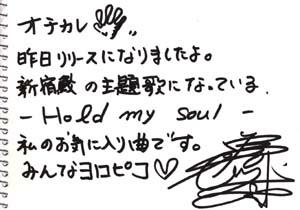 オテカレ
昨日リリースになりましたよ。
新宿鮫の主題歌になっている.
- Hold my soul -
私のお気に入り曲です。
みんなヨロピコ♡